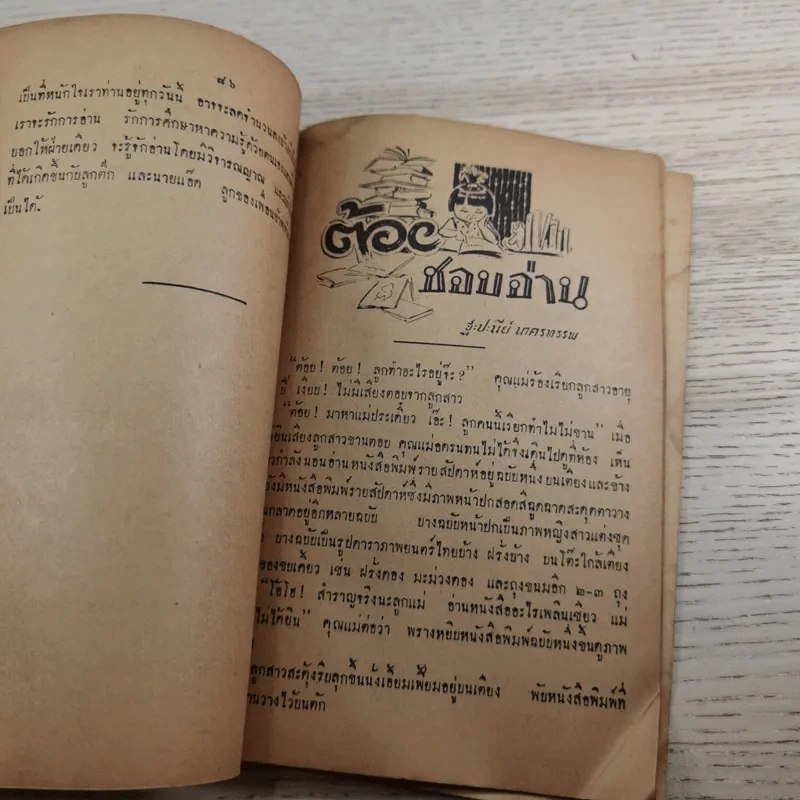 ๘๖
เป็นที่หนักใจเราท่านอยู่ทุกวันนี้ อาจจะลดจำนวนลง
เราจะรักการอ่าน รักการศึกษาหาความรู้ด้วยตนเอง
ยอกให้ฝ่ายเดียว จะรู้จักอ่านโดยมีวิจารณญาณ
ที่ได้เกิดขึ้นกับลูกตึ๊ก และนายแอ๊ด ลูกของเพื่อน
เป็นได้.
ต้อย
ชอบอ่าน
ฐะปะนีย์ นาครทรรพ
"ต้อย! ต้อย! ลูกทำอะไรอยู่จ๊ะ?" คุณแม่ร้องเรียกลูกสาวอายุ
ปี เงียบ! ไม่มีเสียงตอบจากลูกสาว
"ต้อย! มาหาแม่ประเดี๋ยว เอ๊ะ! ลูกคนนี้เรียกทำไมไม่ขาน" เมื่อ
ยินเสียงลูกสาวขานตอบ คุณแม่อดรนทนไม่ได้จึงเดินไปดูที่ห้อง เห็น
วกำลังนอนอ่านหนังสือพิมพ์รายสัปดาห์อยู่ฉบับหนึ่งบนเตียงและข้าง
ยังมีหนังสือพิมพ์รายสัปดาห์ซึ่งมีภาพหน้าปกสอดสีฉูดฉาดสะดุดตาวาง
นกลาดอยู่อีกหลายฉบับ บางฉบับหน้าปกเป็นภาพหญิงสาวแต่งชุด
บางฉบับเป็นรูปดาราภาพยนตร์ไทยบ้าง ฝรั่งบ้าง บนโต๊ะใกล้เตียง
ของขบเคี้ยว เช่น ฝรั่งดอง มะม่วงดอง และถุงขนมอีก ๒-๓ ถุง
"โอ้โฮ! สำราญจริงนะลูกแม่ อ่านหนังสืออะไรเพลินเชียว แม่
ไม่ได้ยิน" คุณแม่ต่อว่า พรางหยิบหนังสือพิมพ์ฉบับหนึ่งขึ้นดูภาพ
ลูกสาวสะดุ้งรีบลุกขึ้นนั่งเอี้ยมเฟี้ยมอยู่บนเตียง พับหนังสือพิมพ์ที่
านวางไว้บนตัก